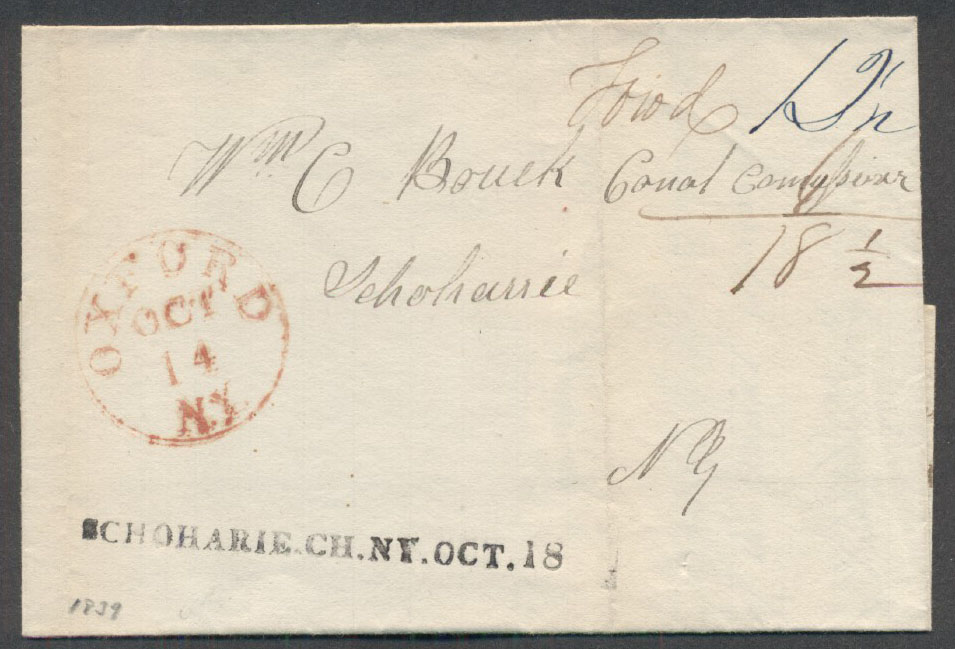 Forwd 12 1/2
Wm C Bouck Canal Commissioner
Schoharrie
18 1/2
OXFORD
OCT
14
N.Y.
NY
SCHOHARIE.CH.NY.OCT.18
1839